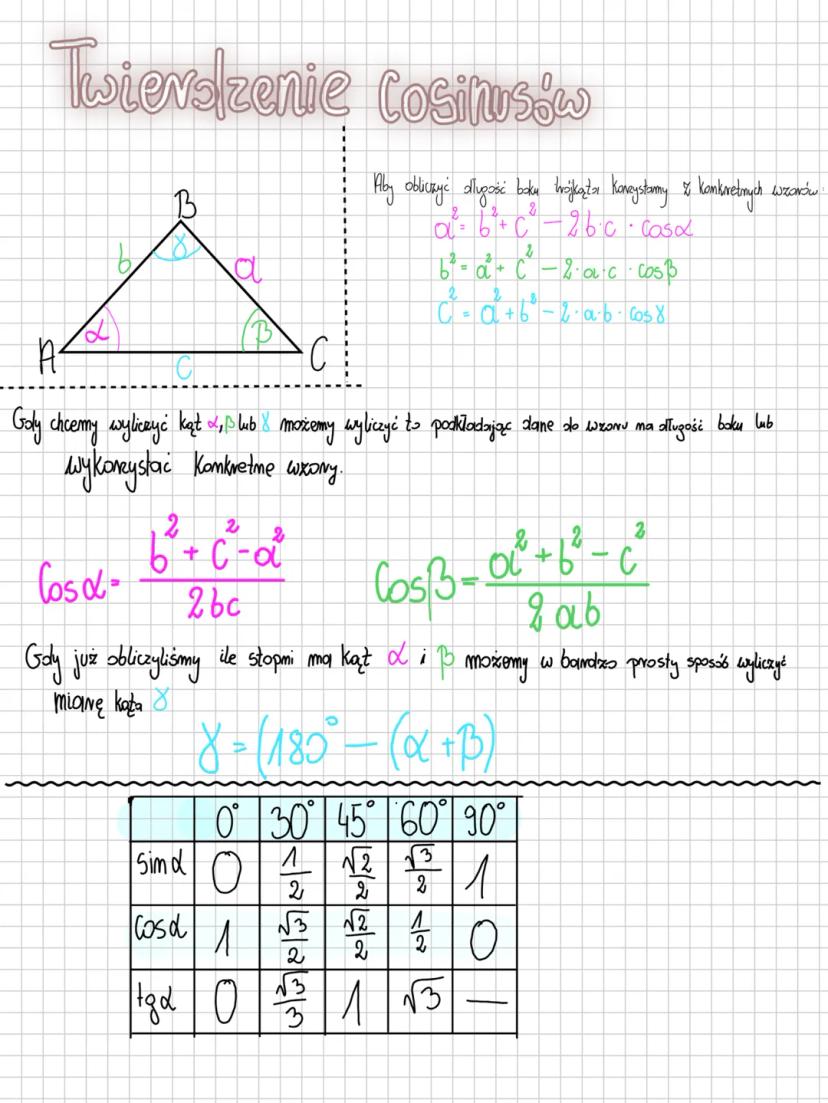 Twierdzenie cosinusów
Aby obliczyć długość boku trójkąta korzystamy z konkretnych wzorów:
a² = b² + c² - 2b·c · cosα
b² = a² + c² - 2·a·c · cosβ
c² = a² + b² - 2·a·b · cosγ
B
b γ a
A α β C
c
Gdy chcemy wyliczyć kąt α, β lub γ możemy wyliczyć to podkładając dane do wzoru na długość boku lub
wykorzystać konkretne wzory.
cosα = (b² + c² - a²) / 2bc
cosβ = (a² + b² - c²) / 2ab
Gdy już obliczyliśmy ile stopni ma kąt α i β możemy w bardzo prosty sposób wyliczyć
miarę kąta γ
γ = (180° - (α + β)
0° 30° 45° 60° 90°
sinα 0 1/2 √2/2 √3/2 1
cosα 1 √3/2 √2/2 1/2 0
tgα 0 √3/3 1 √3 —